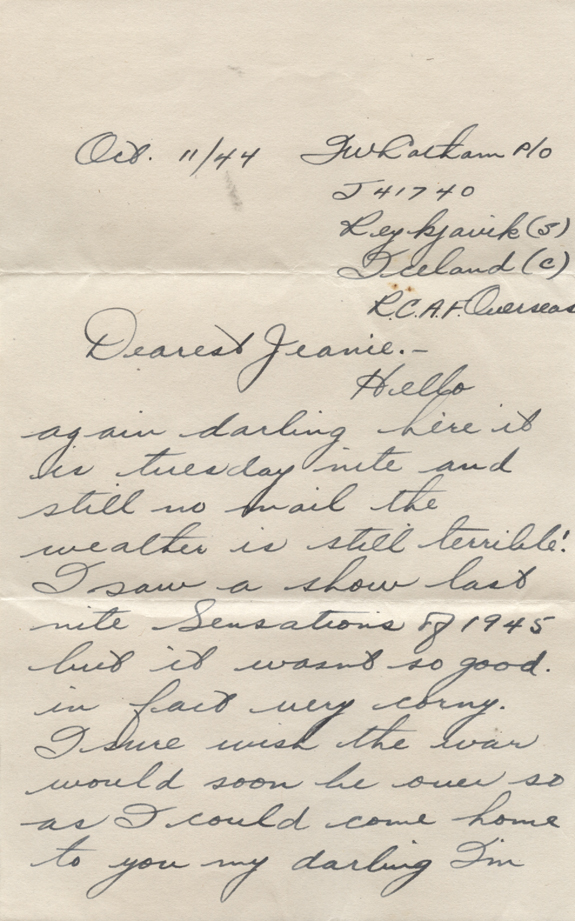 Oct. 11/44 FW Latham P/O
J41740
Reykjavik (S)
Iceland (C)
R.C.A.F. Overseas
Dearest Jeanie.-
Hello
again darling here it
is tuesday nite and
still no mail the
weather is still terrible!
I saw a show last
nite Sensations of 1945
but it wasnt so good.
in fact very corny.
I sure wish the war
would soon be over so
as I could come home
to you my darling I'm